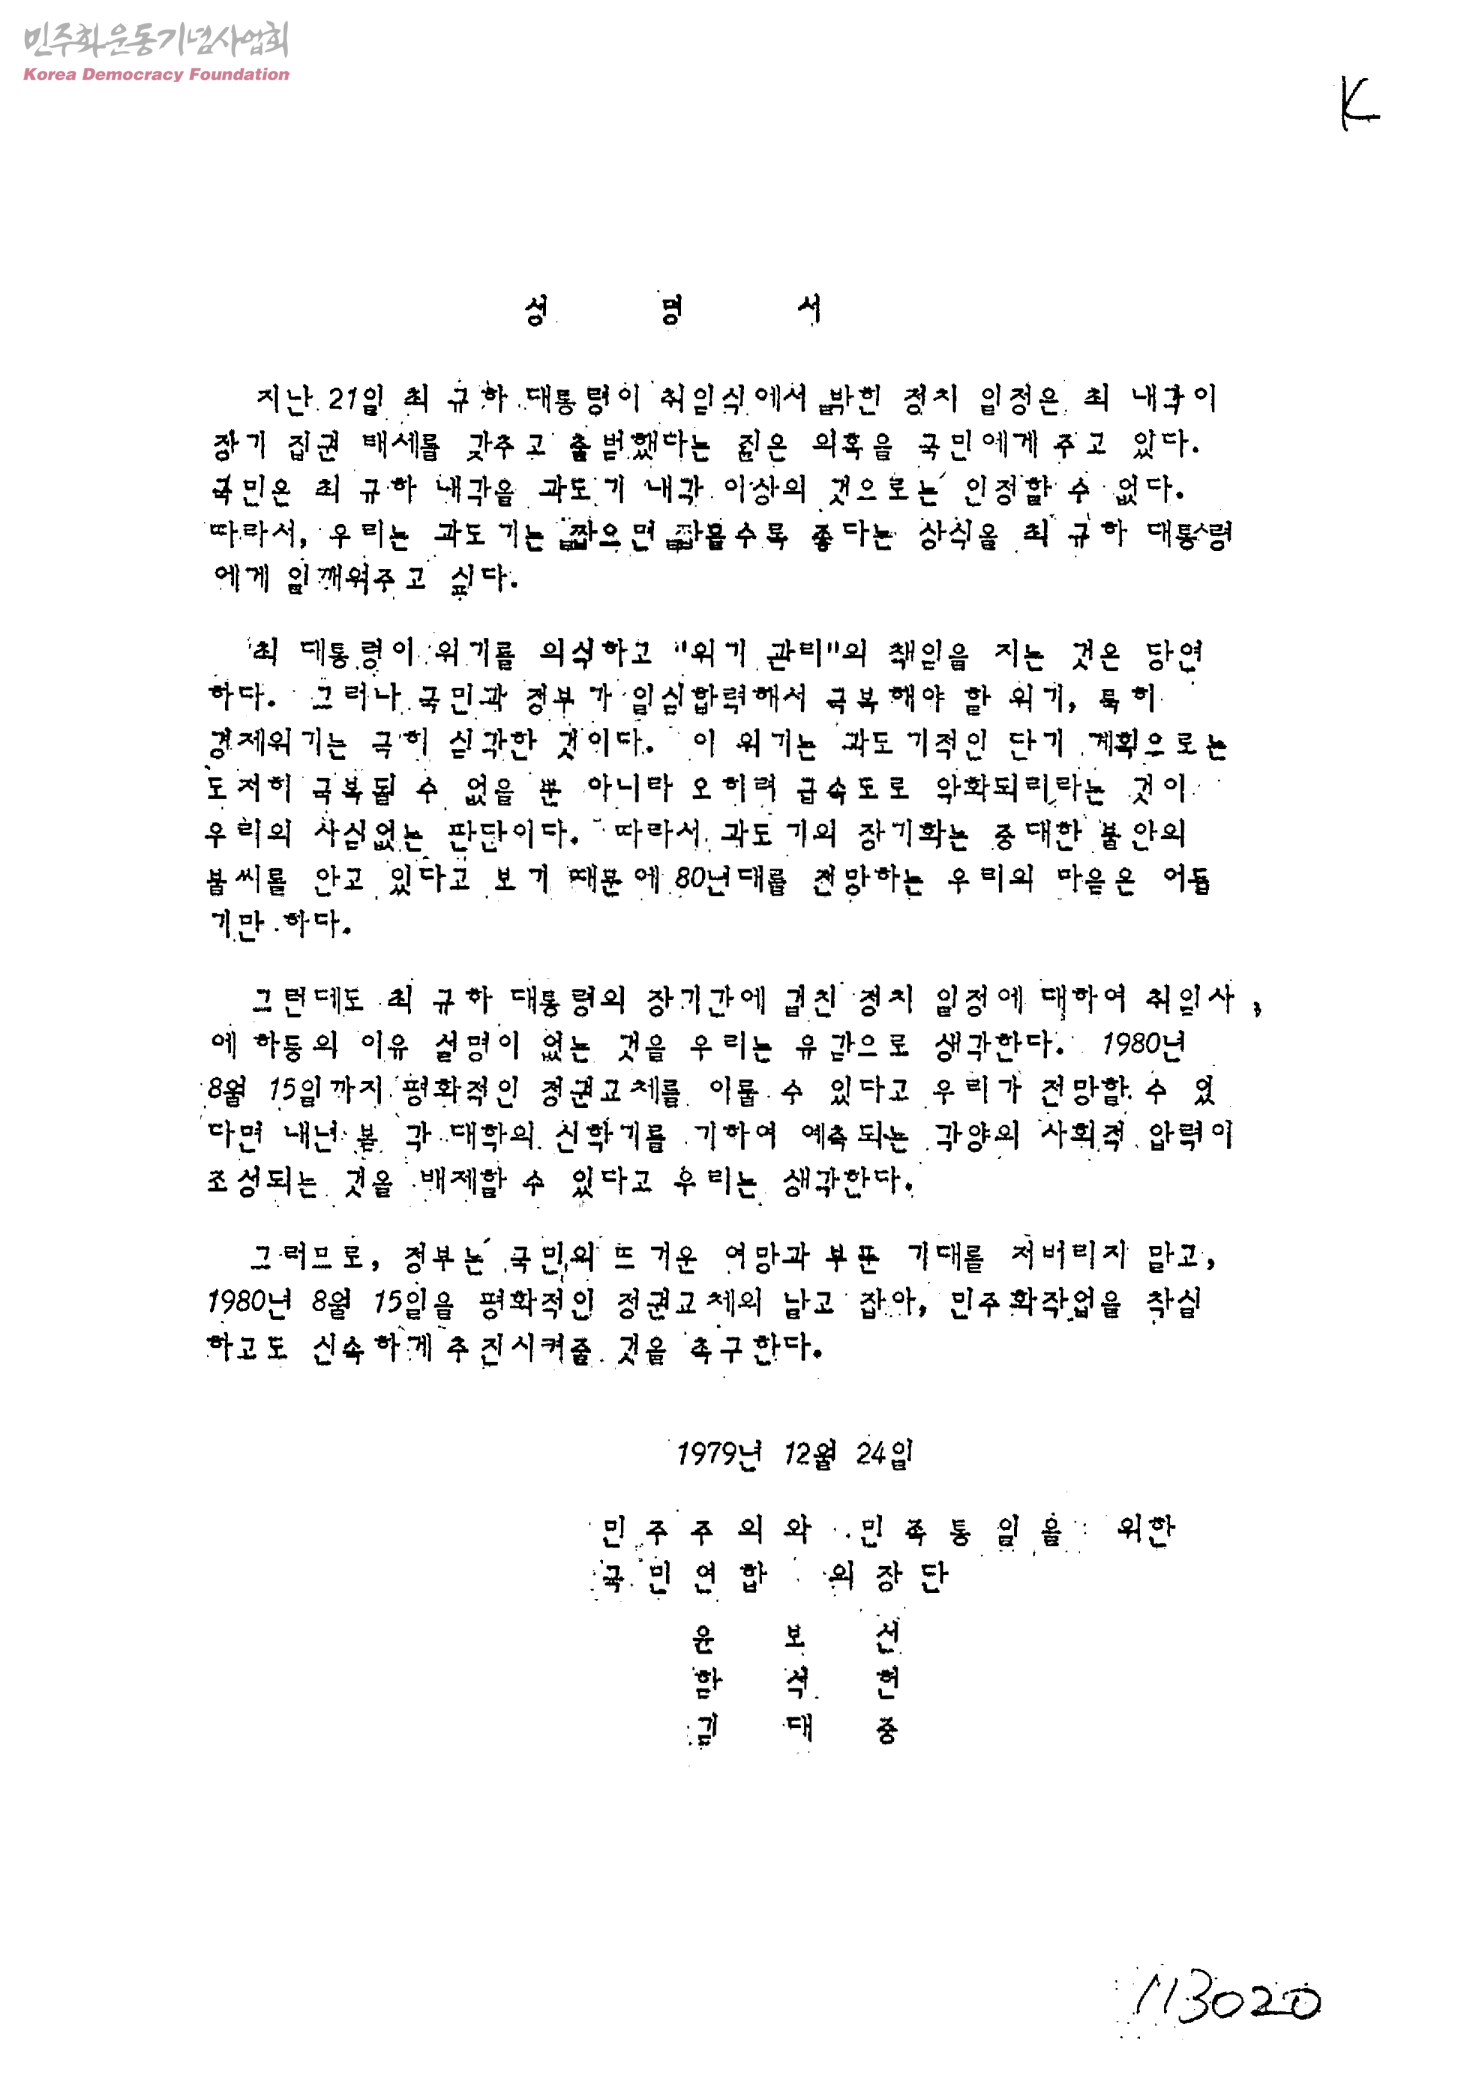 민주화운동기념사업회
Korea Democracy Foundation
K
성 명 서
지난 21일 최 규하 대통령이 취임식에서 밝힌 정치 일정은 최 내각이
장기 집권 태세를 갖추고 출범했다는 짙은 의혹을 국민에게 주고 있다.
국민은 최 규하 내각을 과도기 내각 이상의 것으로는 인정할 수 없다.
따라서, 우리는 과도기는 짧으면 짧을수록 좋다는 상식을 최 규하 대통령
에게 일깨워주고 싶다.
최 대통령이 위기를 의식하고 "위기 관리"의 책임을 지는 것은 당연
하다. 그러나 국민과 정부가 일심합력해서 극복해야 할 위기, 특히
경제위기는 극히 심각한 것이다. 이 위기는 과도기적인 단기 계획으로는
도저히 극복될 수 없을 뿐 아니라 오히려 급속도로 악화되리라는 것이
우리의 사심없는 판단이다. 따라서 과도기의 장기화는 중대한 불안의
불씨를 안고 있다고 보기 때문에 80년대를 전망하는 우리의 마음은 어둡
기만 하다.
그런데도 최 규하 대통령의 장기간에 걸친 정치 일정에 대하여 취임사
에 하등의 이유 설명이 없는 것을 우리는 유감으로 생각한다. 1980년
8월 15일까지 평화적인 정권교체를 이룰 수 있다고 우리가 전망할 수 있
다면 내년 봄 각 대학의 신학기를 기하여 예측되는 각양의 사회적 압력이
조성되는 것을 배제할 수 있다고 우리는 생각한다.
그러므로, 정부는 국민의 뜨거운 여망과 부푼 기대를 저버리지 말고,
1980년 8월 15일을 평화적인 정권교체의 날로 잡아, 민주화작업을 착실
하고도 신속하게 추진시켜줄 것을 촉구한다.
1979년 12월 24일
민주주의와 민족통일을 위한
국민연합 의장단
윤 보 선
함 석 헌
김 대 중
113020